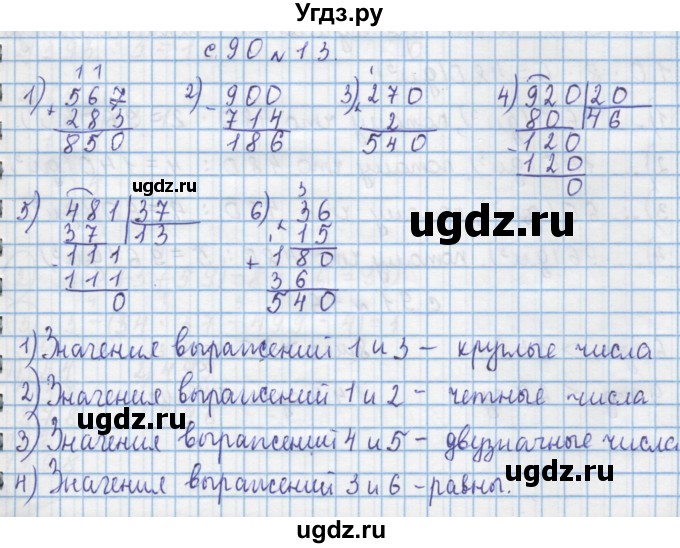 Угдз.ру
с. 90 № 13.
1 1
1) + 567
283
850
2) - 900
714
186
3) × 270
2
540
1
4) 920 | 20
80 | 46
- 120
120
0
5) 481 | 37
37 | 13
- 111
111
0
3
6) × 36
15
+ 180
36
540
ugdz.ru
ugdz.ru
ugdz.ru
1) Значения выражений 1 и 3 – круглые числа
2) Значения выражений 1 и 2 – четные числа
3) Значения выражений 4 и 5 – двузначные числа
4) Значения выражений 3 и 6 – равны.
ugdz.ru
ugdz.ru
ugdz.ru
ugdz.ru